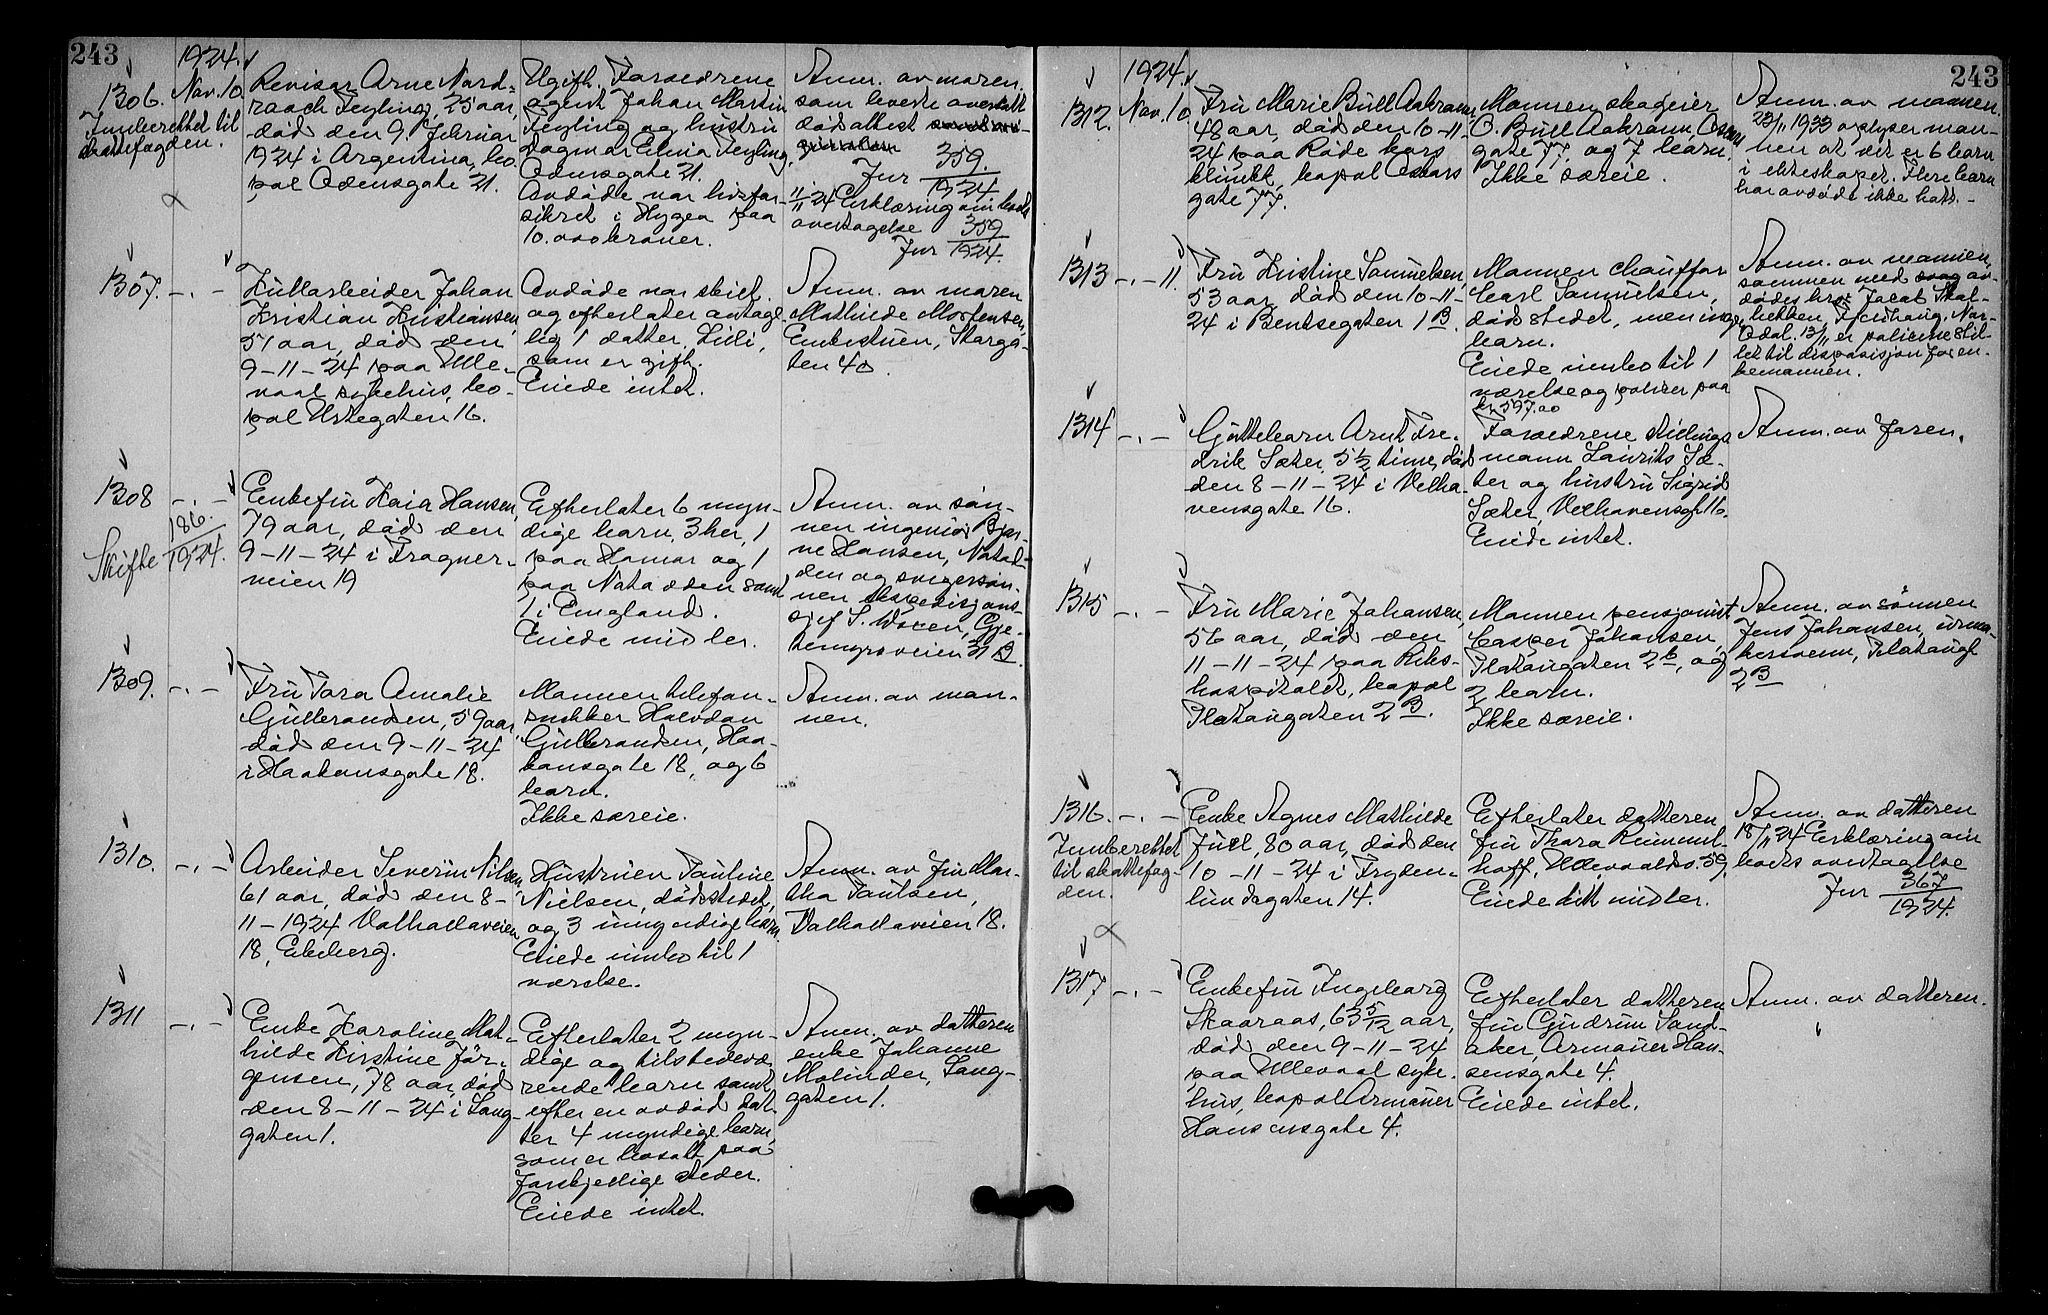 243
1924.
1306.
Nov. 10
Innberettet til
skattefogden.
Revisor Arne Nord-
raach Tegling, 25 aar,
død den 9. februar
1924 i Argentina, bo-
pæl Odensgate 21.
Ugift. Forældrene
agent Johan Martin
Tegling og hustru
Dagmar Elvia Tegling,
Odensgate 21.
Avdøde var livsfor-
sikret i Hygea paa
10.000 kroner.
Anm. av moren
som leverte
dødsattest
Jnr 359/1924
11/11 24 Erklæring om boets
overtagelse
Jnr 359/1924.
1307. -.-
Kullarbeider Johan
Kristian Kristiansen,
51 aar, død den
9-11-24 paa Ulle-
vaal sykehus, bo-
pæl Urtegaten 16.
Avdøde var skilt
og efterlater antage-
lig 1 datter, Lilli,
som er gift.
Eiede intet.
Anm. av moren
Mathilde Mortensen,
Enkestuen, Storga-
ten 40.
1308 -.-
Skifte 186./1924.
Enkefru Kaia Hansen,
79 aar, død den
9-11-24 i Frogner-
veien 19
Efterlater 6 myn-
dige barn, 3 her, 1
paa Hamar og 1
paa Notodden samt
1 i England.
Eiede midler.
Anm. av søn-
nen ingeniør Bjar-
ne Hansen, Notod-
den og svigersøn-
nen ekspedisjons-
sjef S.
31 B.
1309. -.-
Fru Tora Amalie
Gulbrandsen, 59 aar,
død den 9-11-24
i Haakonsgate 18.
Mannen telefon-
snekker Halvdan
Gulbrandsen, Haa-
konsgate 18, og 6
barn.
Ikke særeie.
Anm. av man-
nen.
1310. -.-
Arbeider Severin Nilsen,
61 aar, død den 8-
11-1924 Valhallaveien
18, Ekeberg.
Hustruen Pauline
Nielsen, dødsstedet,
og 3 umyndige barn.
Eiede innbo til 1
værelse.
Anm. av fru Mar-
tha Paulsen,
Valhallaveien 18.
1311 -.-
Enke Karoline Mat-
hilde Kirstine Jør-
gensen, 78 aar, død
den 8-11-24 i Lang-
gaten 1.
Efterlater 2 myn-
dige og tilstedevæ-
rende barn samt
efter en avdød dat-
ter 4 myndige barn,
som er bosatt paa
forskjellige steder.
Eiede intet.
Anm. av datteren
enke Johanne
Molinder, Lang-
gaten 1.
243
1924.
1312. Nov. 10
Fru Marie Bull Aakrann,
48 aar, død den 10-11-
24 paa Røde kors
klinikk, bopæl Oscars
gate 77.
Mannen skogeier
O. Bull Aakrann, Oscars
gate 77, og 7 barn.
Ikke særeie.
Anm. av mannen.
23/11 1933 opplyser man-
nen at det er 6 barn
i ekteskapet. Flere barn
har avdøde ikke hatt.-
1313 -.- 11.
Fru Kristine Samuelsen,
53 aar, død den 10-11-
24 i Bentsegaten 1 B.
Mannen chauffør
Carl Samuelsen,
dødsstedet, men inge
barn.
Eiede innbo til 1
værelse og polise paa
kr. 597.00
Anm. av mannen,
sammen med av-
dødes bror Jacob
Nor-
Odal. 13/11 er policene stil-
let til disposisjon for en-
kemannen.
1314 -.-
Guttebarn Arnt Fre-
drik Sæter, 5 1/2 time, død
den 8-11-24 i Velha-
vensgate 16.
Forældrene
mann Lauritz Sæ-
ter og hustru Sigrid
Sæter, Velhavensgt 16.
Eiede intet.
Anm. av faren.
1315 -.-
Fru Marie Johansen,
56 aar, død den
11-11-24 paa Riks-
hospitalet, bopæl
Platousgaten 2 B.
Mannen pensjonist
Casper Johansen,
Platousgaten 2 b, og
2 barn.
Ikke særeie.
Anm. av sønnen
Jens Johansen, urma-
kersvenn, Platousgt
2 B
1316. -.-
Innberettet
til skattefog-
den.
Enke Agnes Mathilde
Juell, 80 aar, død den
10-11-24 i Fryden-
lundsgaten 14.
Efterlater datteren
fru Thora Rummel-
hoff, Ullevaalsv. 59,
Eiede litt midler.
Anm. av datteren
18/11 24 Erklæring om
boets overtagelse
Jnr 367/1924.
1317 -.-
Enkefru Ingeborg
Skaaraas, 63 5/12 aar,
død den 9-11-24
paa Ullevaal syke-
hus, bopæl Armauer
Hansensgate 4.
Efterlater datteren
fru Gudrun Sand-
aker, Armauer Han-
sensgate 4.
Eiede intet.
Anm. av datteren.